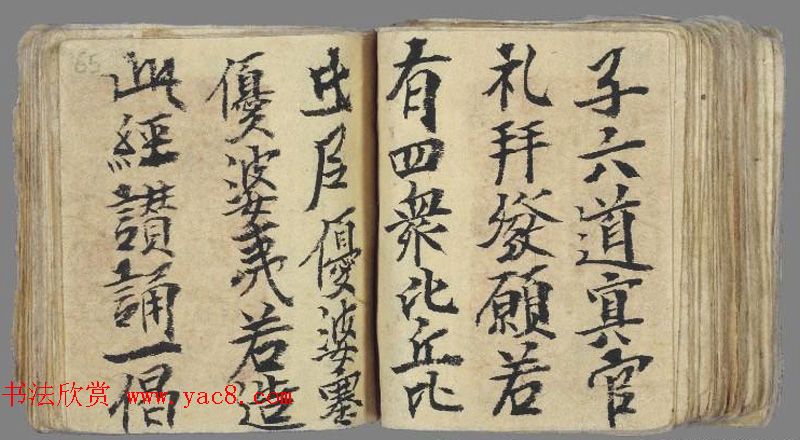 子六道冥官
礼拜發願若
有四衆比丘比
丘尼優婆塞
優婆夷若造
此經讚誦一偈
65
书法欣赏 www.yac8.com